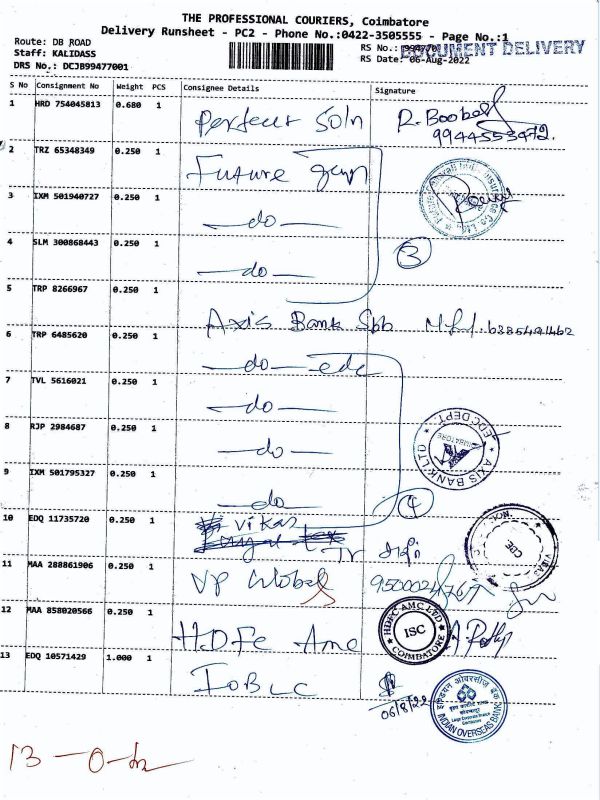 THE PROFESSIONAL COURIERS, Coimbatore
Delivery Runsheet - PC2 - Phone No.:0422-3505555 - Page No.:1
Route: DB ROAD
Staff: KALIDASS
DRS No.: DCJB99477001
RS No.: DOCUMENT DELIVERY
RS Date: 06-Aug-2022
S No Consignment No Weight PCS Consignee Details Signature
1 HRD 754045813 0.680 1 Perfect Soln R. Boobal
9944553472.
2 TRZ 65348349 0.250 1 Future gen
3 IXM 501940727 0.250 1 —do—
4 SLM 300868443 0.250 1 —do— 3
5 TRP 8266967 0.250 1 Axis Bank Sbb
6 TRP 6485620 0.250 1 —do— edc
7 TVL 5616021 0.250 1 —do—
8 RJP 2984687 0.250 1 —do—
AXIS BANK LTD. EDC DEPT.
9 IXM 501795327 0.250 1 —do— 4
10 EDQ 11735720 0.250 1 Vikas Tr
CBE
11 MAA 288861906 0.250 1 VP Global
12 MAA 858020566 0.250 1 HDFC Amc
HDFC AMC LTD ISC COIMBATORE
13 EDQ 10571429 1.000 1 IOB LC
06/8/22
इण्डियन ओवरसीज़ बैंक
INDIAN OVERSEAS BANK
13 — 0 —